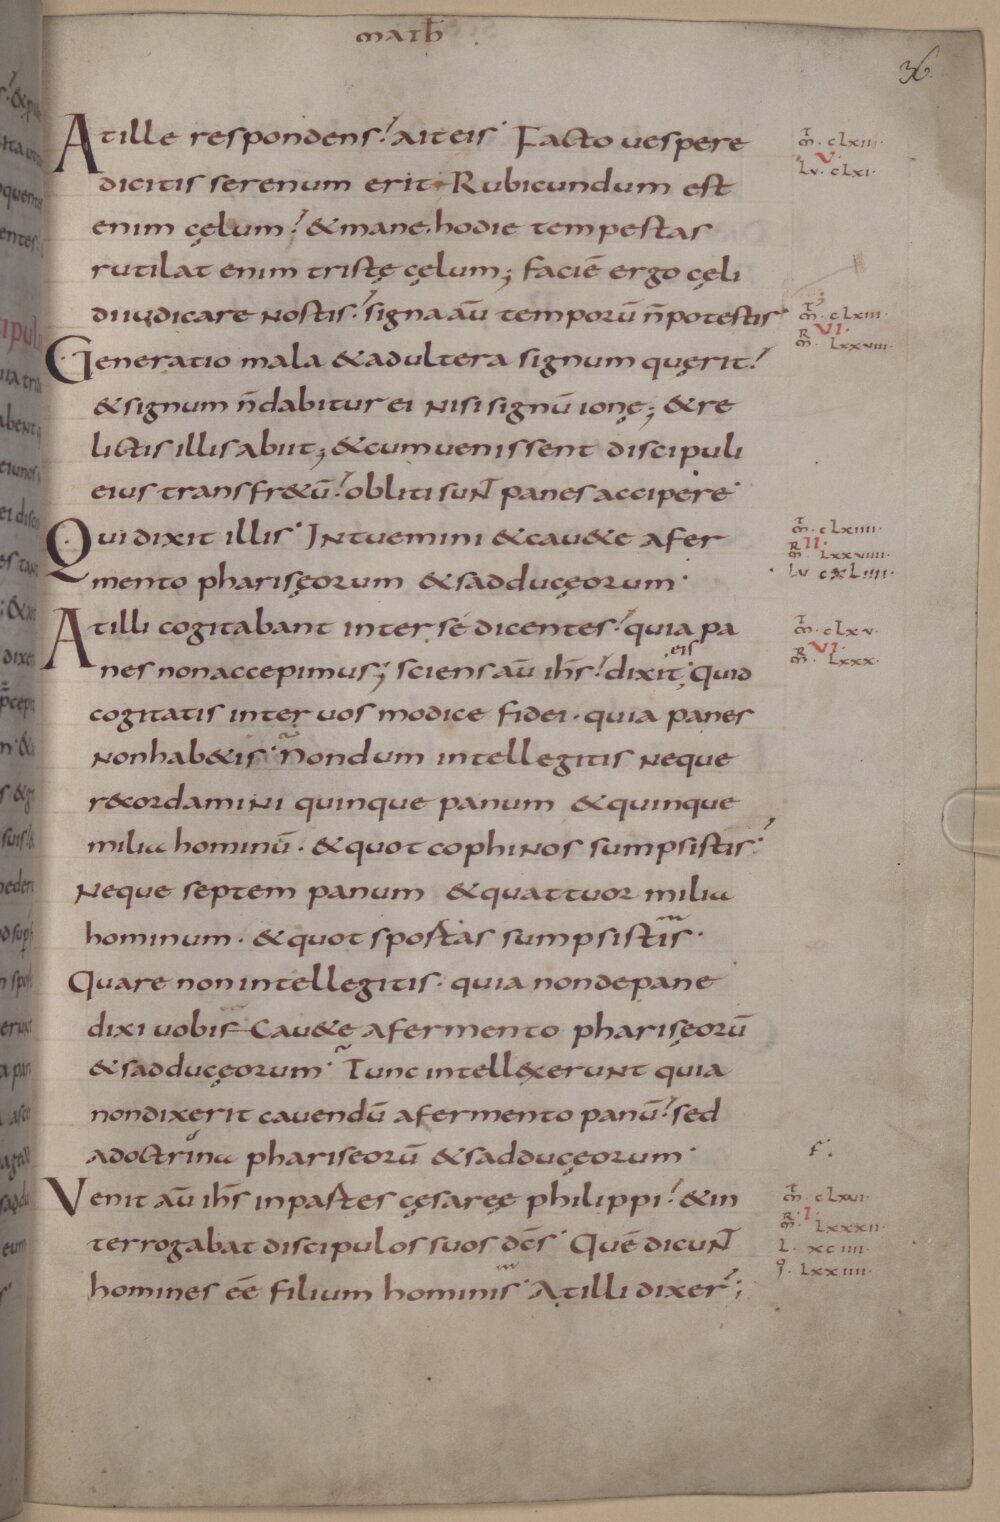 math
36
Atille respondens? aiteis· Facto uespere
dicitis serenum erit· Rubicundum est
enim cęlum? & mane. hodie tempestas
rutilat enim tristę cęlum; faciē ergo cęli
diiudicare nostis? signa aū temporū n̄potestis
Generatio mala & adultera signum quęrit?
& signum n̄dabitur ei nisi signū ionę; & re
lictis illis abiit; & cum uenissent discipuli
eius transfr&ū? obliti sunt panes accipere·
Qui dixit illis· Intuemini & cau&e afer
mento pharisęorum & sadducęorum·
Atilli cogitabant inter sé dicentes? quia pa
nes nonaccepimus; sciens aū ihs̄? dixit eis· Quid
cogitatis inter uos modice fidei· quia panes
nonhab&is· Nondum intellegitis neque
recordamini quinque panum & quinque
milia hominū· & quot cophinos sumpsistis?
Neque septem panum & quattuor milia
hominum· & quot sportas sumpsistis·
Quare non intellegitis· quia nondepane
dixi uobis Cau&e afermento pharisęorū
& sadducęorum· Tunc intellexerunt quia
nondixerit cauendū afermento panū? sed
adoctrina phariseorū & sadducęorum·
Venit aū ihs̄ inpartes cęsaręę philippi? & in
terrogabat discipulos suos dc̄s· Quē dicunt
homines eē filium hominis· Atilli dixer̄;
m̄. clxii.
V.
Lu. clxi.
m̄. clxiii.
VI.
m̄. lxxviii.
m̄. clxiiii.
II.
m̄. lxxviiii.
Lu cxliiii.
m̄. clxv.
VI.
m̄. lxxx.
F.
m̄. clxvi.
I.
m̄. lxxxii.
L. xciiii.
J. lxxiiii.